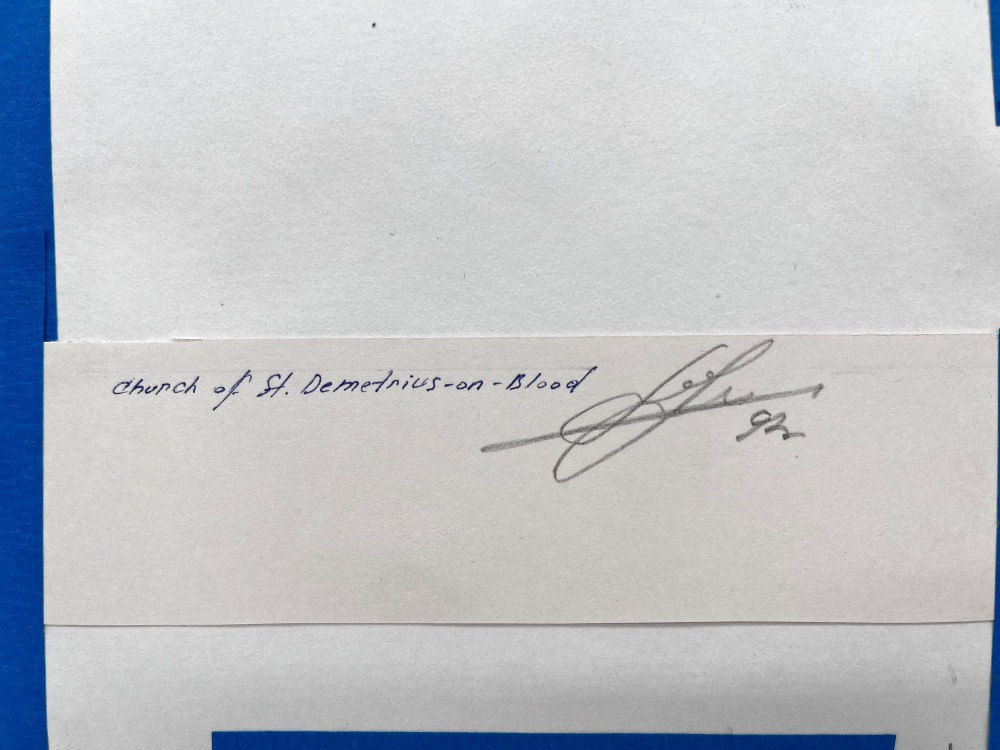 Church of St. Demetrius-on-Blood
92